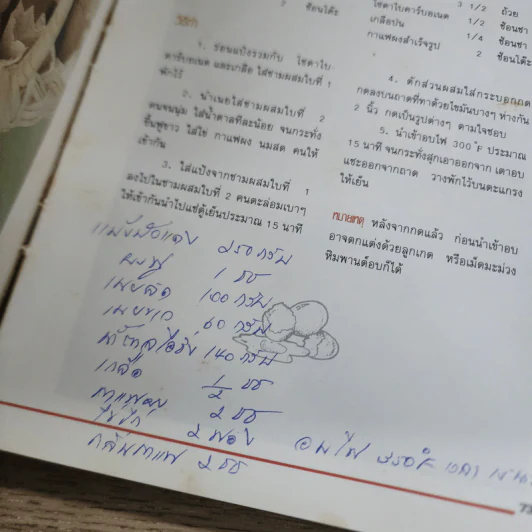 2 ช้อนโต๊ะ
3 1/2 ถ้วย
โซดาไบคาร์บอเนต 1/2 ช้อนชา
เกลือป่น 1/4 ช้อนชา
กาแฟผงสำเร็จรูป 2 ช้อนโต๊ะ
วิธีทำ
1. ร่อนแป้งรวมกับ โซดาไบ
คาร์บอเนต และเกลือ ใส่ชามผสมใบที่ 1
พักไว้
2. นำเนยใส่ชามผสมใบที่ 2
คนจนนุ่ม ใส่น้ำตาลทีละน้อย จนกระทั่ง
ขึ้นฟูขาว ใส่ไข่ กาแฟผง นมสด คนให้
เข้ากัน
3. ใส่แป้งจากชามผสมใบที่ 1
ลงไปในชามผสมใบที่ 2 คนตะล่อมเบาๆ
ให้เข้ากันนำไปแช่ตู้เย็นประมาณ 15 นาที
4. ตักส่วนผสมใส่กระบอกกด
กดลงบนถาดที่ทาด้วยไขมันบางๆ ห่างกัน
2 นิ้ว กดเป็นรูปต่างๆ ตามใจชอบ
5. นำเข้าอบไฟ 300 °F ประมาณ
15 นาที จนกระทั่งสุกเอาออกจาก เตาอบ
แซะออกจากถาด วางพักไว้บนตะแกรง
ให้เย็น
หมายเหตุ หลังจากกดแล้ว ก่อนนำเข้าอบ
อาจตกแต่งด้วยลูกเกด หรือเม็ดมะม่วง
หิมพานต์อบก็ได้
250 กรัม
ผงฟู 1 ชช
เนยสด 100 กรัม
เนยขาว 60 กรัม
น้ำตาลไอซิ่ง 140 กรัม
เกลือ 1/2 ชช
กาแฟผง 2 ชช
ไข่ไก่ 2 ฟอง
กลิ่นกาแฟ 2 ชช
อบไฟ 350 °F เวลา